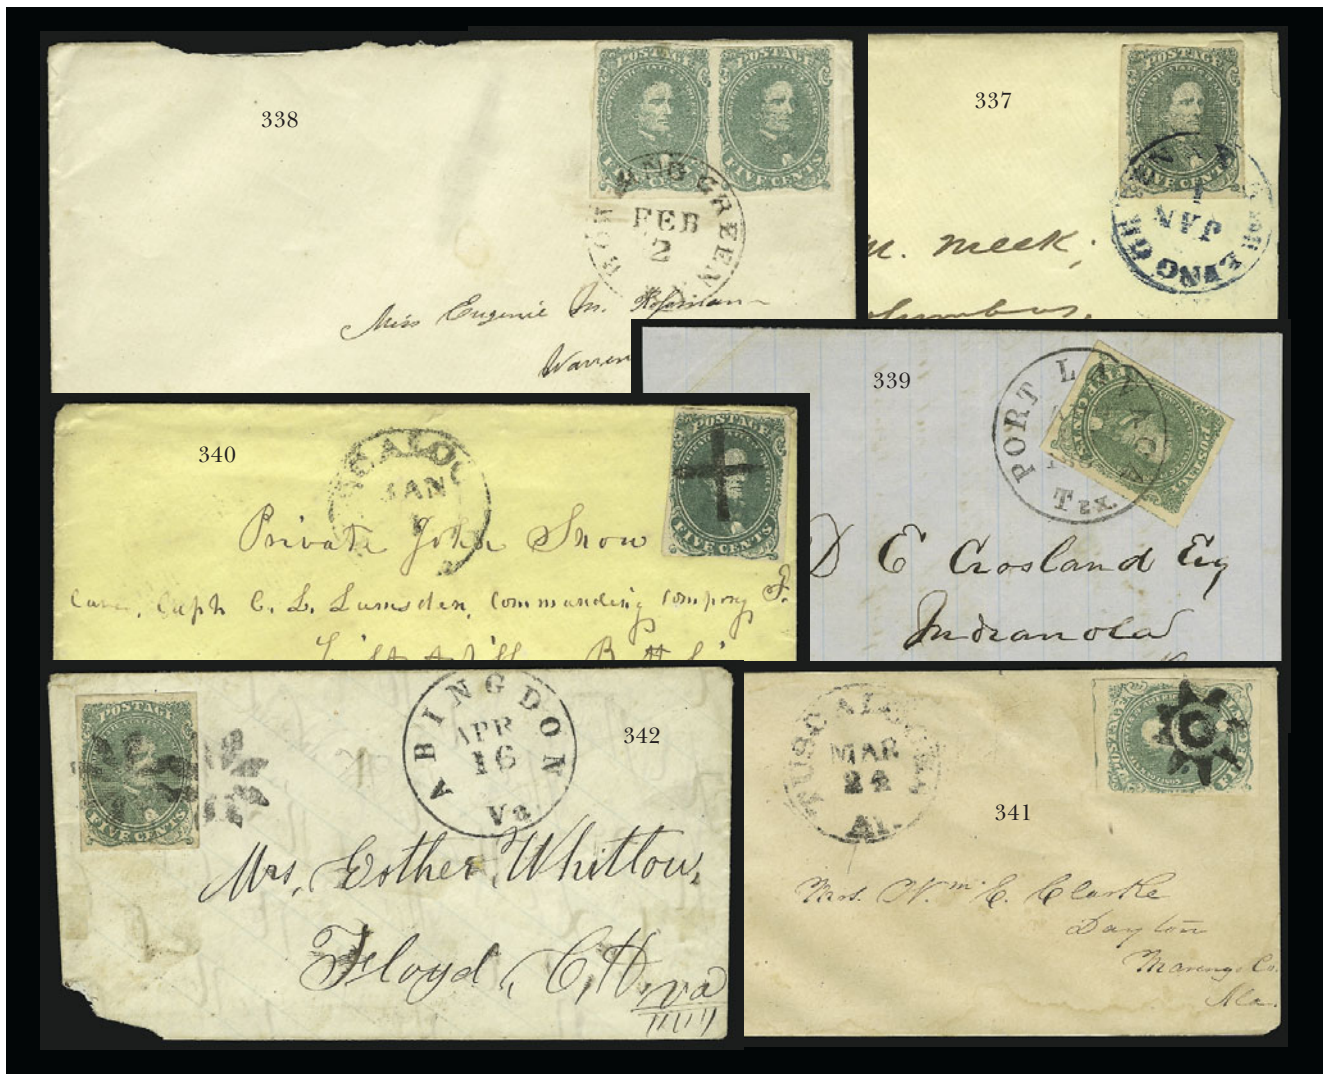 338
POSTAGE
FIVE CENTS
POSTAGE
FIVE CENTS
BOWLING GREEN
FEB
2
Miss Eugenie M.
Warren
337
FIVE CENTS
BOWLING GREEN
JAN
Meek;
Columbus,
339
PORT LAVACA
Tex.
D E Crosland Esq
Indianola
340
POSTAGE
FIVE CENTS
SCALOO
JAN
Private John Snow
Care. Caph C. L. Lumsden, Commanding Company F.
342
POSTAGE
FIVE CENTS
ABINGDON
APR
16
Va
Mrs, Esther, Whitlow,
Floyd, C, H, va
341
POSTAGE
TUSCALOOSA
MAR
24
Al.
Mrs. Wm. E. Clarke
Dayton
Marengo Co.
Ala.